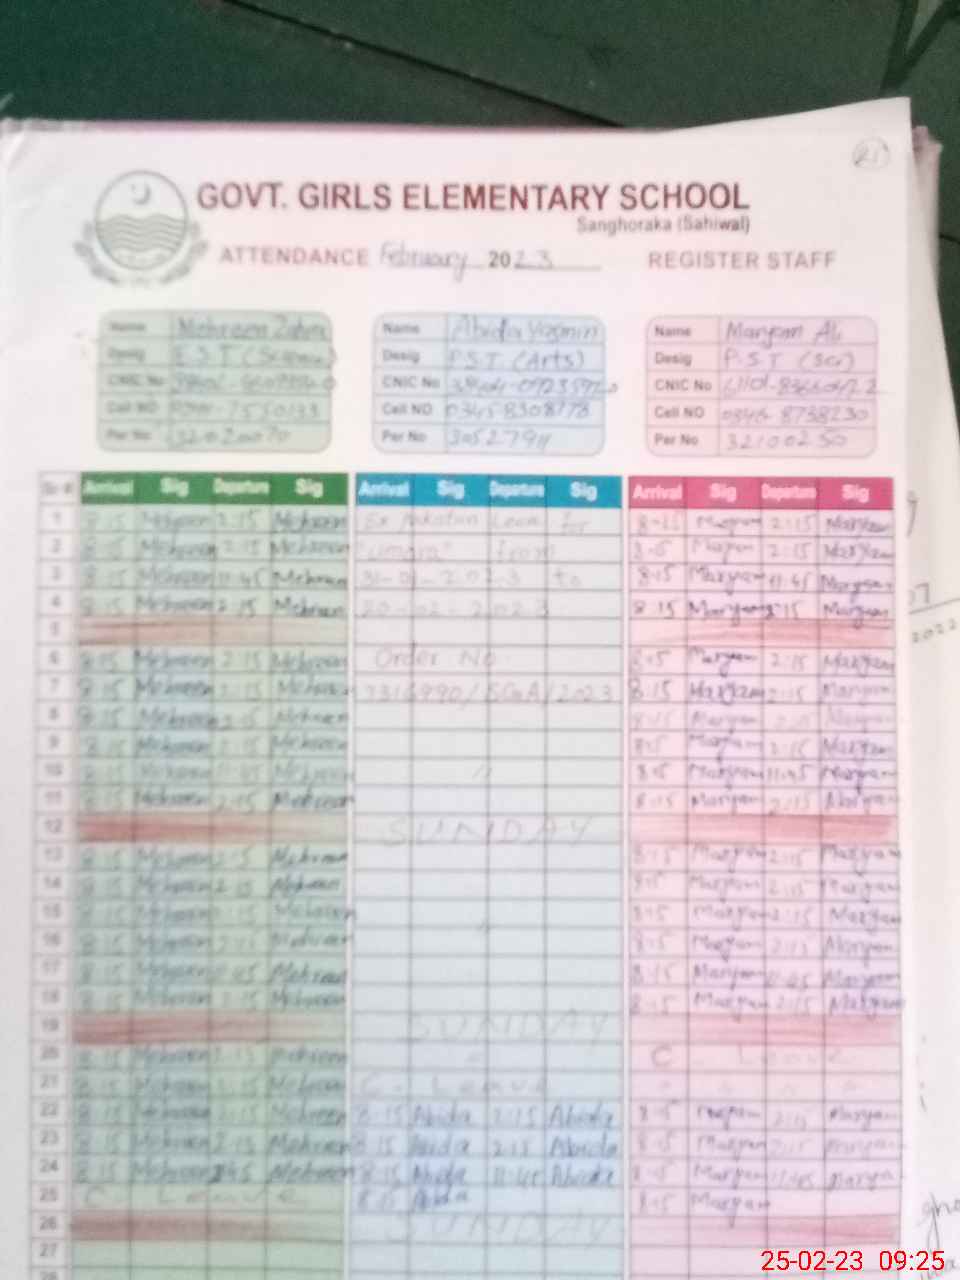 21
GOVT. GIRLS ELEMENTARY SCHOOL
Sanghoraka (Sahiwal)
ATTENDANCE February 2023 REGISTER STAFF
Name Mehreen Zahra Name Abida Yasmin Name Maryam Ali
Desig E.S.T (Science) Desig P.S.T (Arts) Desig P.S.T (Sci)
CNIC No CNIC No CNIC No
Cell NO Cell NO 0345 8308778 Cell NO 0346 8738230
Per No Per No Per No 32100250
Sr # Arrival Sig Departure Sig Arrival Sig Departure Sig Arrival Sig Departure Sig
1 8:15 Mehreen 2:15 Mehreen Ex Pakistan Leave for 8:15 Maryam 2:15 Maryam
2 8:15 Mehreen 2:15 Mehreen "Umara" from 8:15 Maryam 2:15 Maryam
3 8:15 Mehreen 11:45 Mehreen 31-01-2023 to 8:15 Maryam 11:45 Maryam
4 8:15 Mehreen 2:15 Mehreen 20-02-2023 8:15 Maryam 2:15 Maryam
5
6 8:15 Mehreen 2:15 Mehreen Order No 8:15 Maryam 2:15 Maryam
7 8:15 Mehreen 2:15 Mehreen /2023 8:15 Maryam 2:15 Maryam
8 8:15 Mehreen 2:15 Mehreen 8:15 Maryam 2:15 Maryam
9 8:15 Mehreen 2:15 Mehreen 8:15 Maryam 2:15 Maryam
10 8:15 Mehreen 11:45 Mehreen 〃 8:15 Maryam 11:45 Maryam
11 8:15 Mehreen 2:15 Mehreen 8:15 Maryam 2:15 Maryam
12 SUNDAY
13 8:15 Mehreen 2:15 Mehreen 8:15 Maryam 2:15 Maryam
14 8:15 Mehreen 2:15 Mehreen 8:15 Maryam 2:15 Maryam
15 8:15 Mehreen 2:15 Mehreen 8:15 Maryam 2:15 Maryam
16 8:15 Mehreen 2:15 Mehreen 8:15 Maryam 2:15 Maryam
17 8:15 Mehreen 11:45 Mehreen 8:15 Maryam 11:45 Maryam
18 8:15 Mehreen 2:15 Mehreen 8:15 Maryam 2:15 Maryam
19 SUNDAY
20 8:15 Mehreen 2:15 Mehreen C. Leave
21 8:15 Mehreen 2:15 Mehreen C. Leave
22 8:15 Mehreen 2:15 Mehreen 8:15 Abida 2:15 Abida 8:15 Maryam 2:15 Maryam
23 8:15 Mehreen 2:15 Mehreen 8:15 Abida 2:15 Abida 8:15 Maryam 2:15 Maryam
24 8:15 Mehreen 11:45 Mehreen 8:15 Abida 11:45 Abida 8:15 Maryam 11:45 Maryam
25 C Leave 8:15 Abida 8:15 Maryam
26 SUNDAY
27
2022
25-02-23 09:25